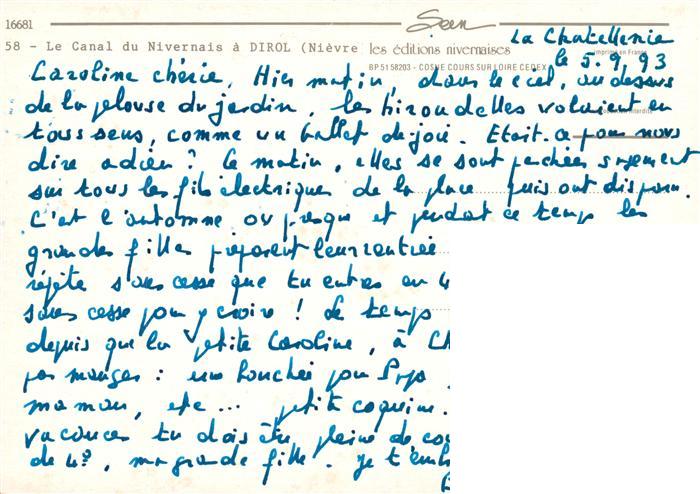 16681 Seen
58 - Le Canal du Nivernais à DIROL (Nièvre les éditions nivernaises
La Chatellenie
BP 51 58203 - COSNE COURS SUR LOIRE CEDEX
imprimé en France
le 5.9.93
Caroline chérie, Hier matin, dans le ciel, au dessus
de la pelouse du jardin, les hirondelles volaient en
tous sens, comme un ballet de joie. Etait-ce pour nous
dire adieu ? Ce matin, elles se sont perchées sagement
sur tous les fils électriques de la place puis ont disparu.
C'est l'automne ou presque et pendant ce temps les
grandes filles préparent leur rentrée
répète sans cesse que tu entres en 4
sans cesse pour y croire ! Le temps
depuis que la petite Caroline, à Ch
pas manger : une bouchée pour Papa
maman, etc ... petite coquine.
vacances tu dois être pleine de cou
de 4e, ma grande fille. Je t'emb